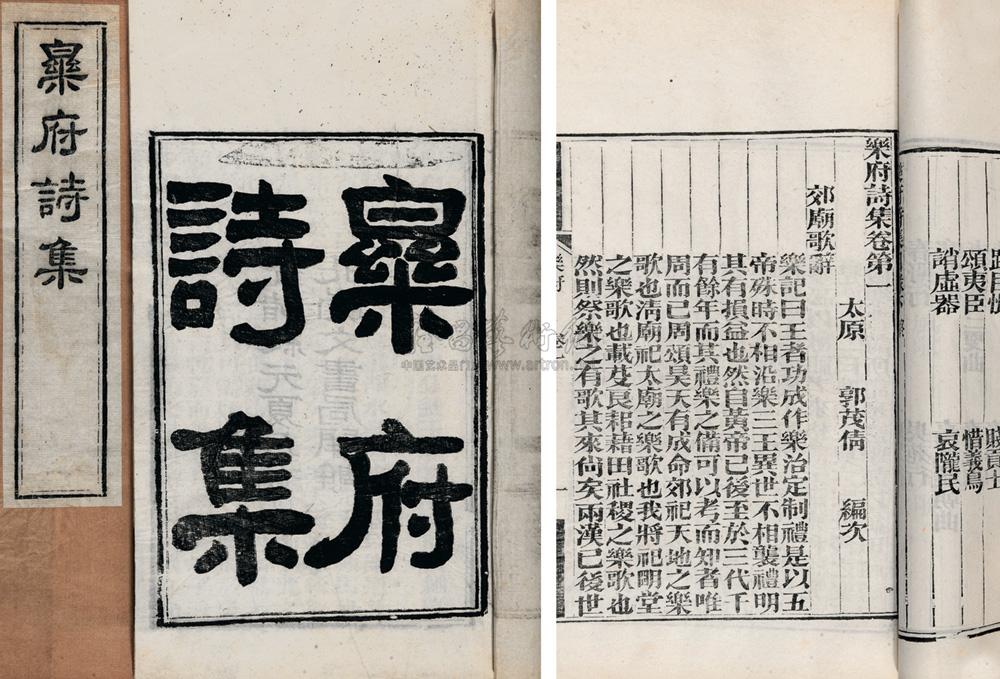 樂府詩集
樂府
詩集
樂府詩集卷第一
太原 郭茂倩 編次
郊廟歌辭
樂記曰王者功成作樂治定制禮是以五
帝殊時不相沿樂三王異世不相襲禮明
其有損益也然自黃帝已後至於三代千
有餘年而其禮樂之備可以考而知者唯
周而已周頌昊天有成命郊祀天地之樂
歌也淸廟祀太廟之樂歌也我將祀明堂
之樂歌也載芟良耜藉田社稷之樂歌也
然則祭樂之有歌其來尙矣兩漢已後世
頌夷臣 惜義鳥
誚虛器 哀隴民
www.artron